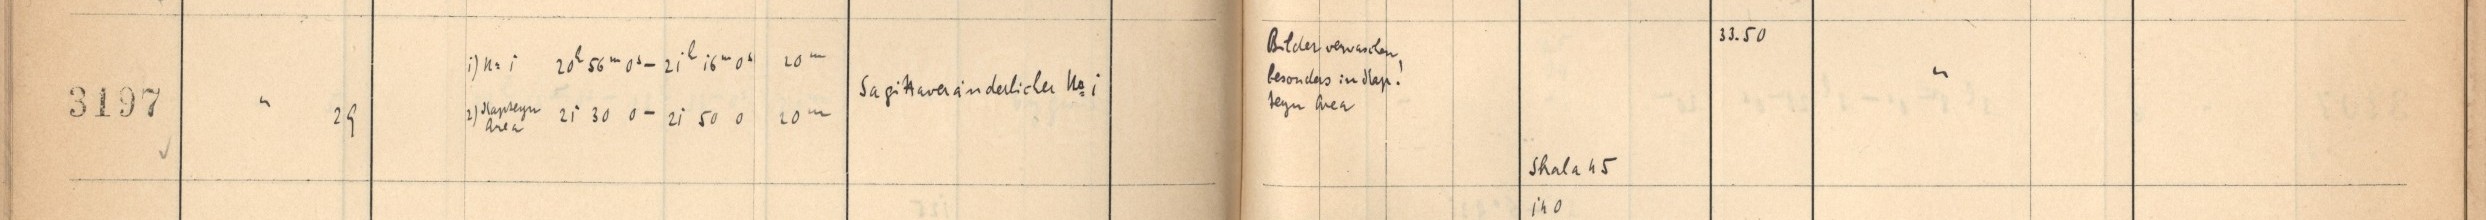 3197 " 29
1) No 1 20h 56m 0s — 21h 16m 0s 20m
2) Kapteyn Area 21 30 0 — 21 50 0 20m
Sagittaveränderlicher No 1
Bilder verwaschen,
besonders in Kap-
teyn Area!
33.50
"
Skala 45
140